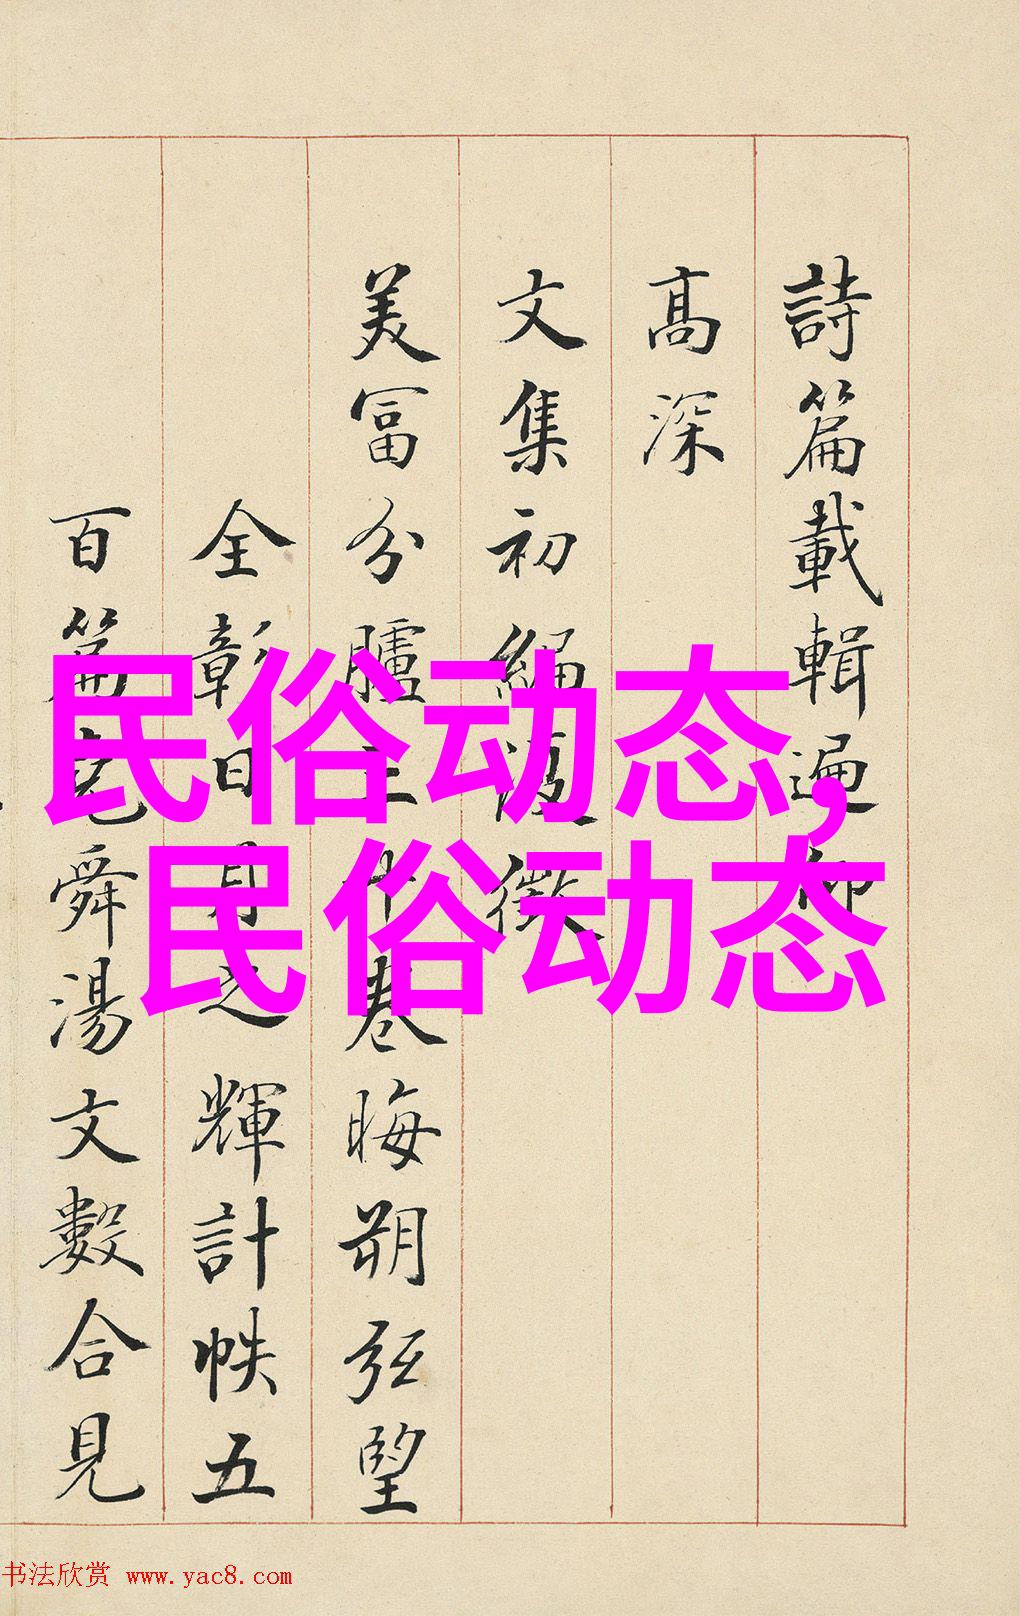 詩篇載輯遍仰
高深
文集初編復徵
美富分臚三十卷晦朔弦望
全彰日月之輝計帙五
百篇堯舜湯文數合見
民俗动态,
民俗动态
书法欣赏 www.yac8.com